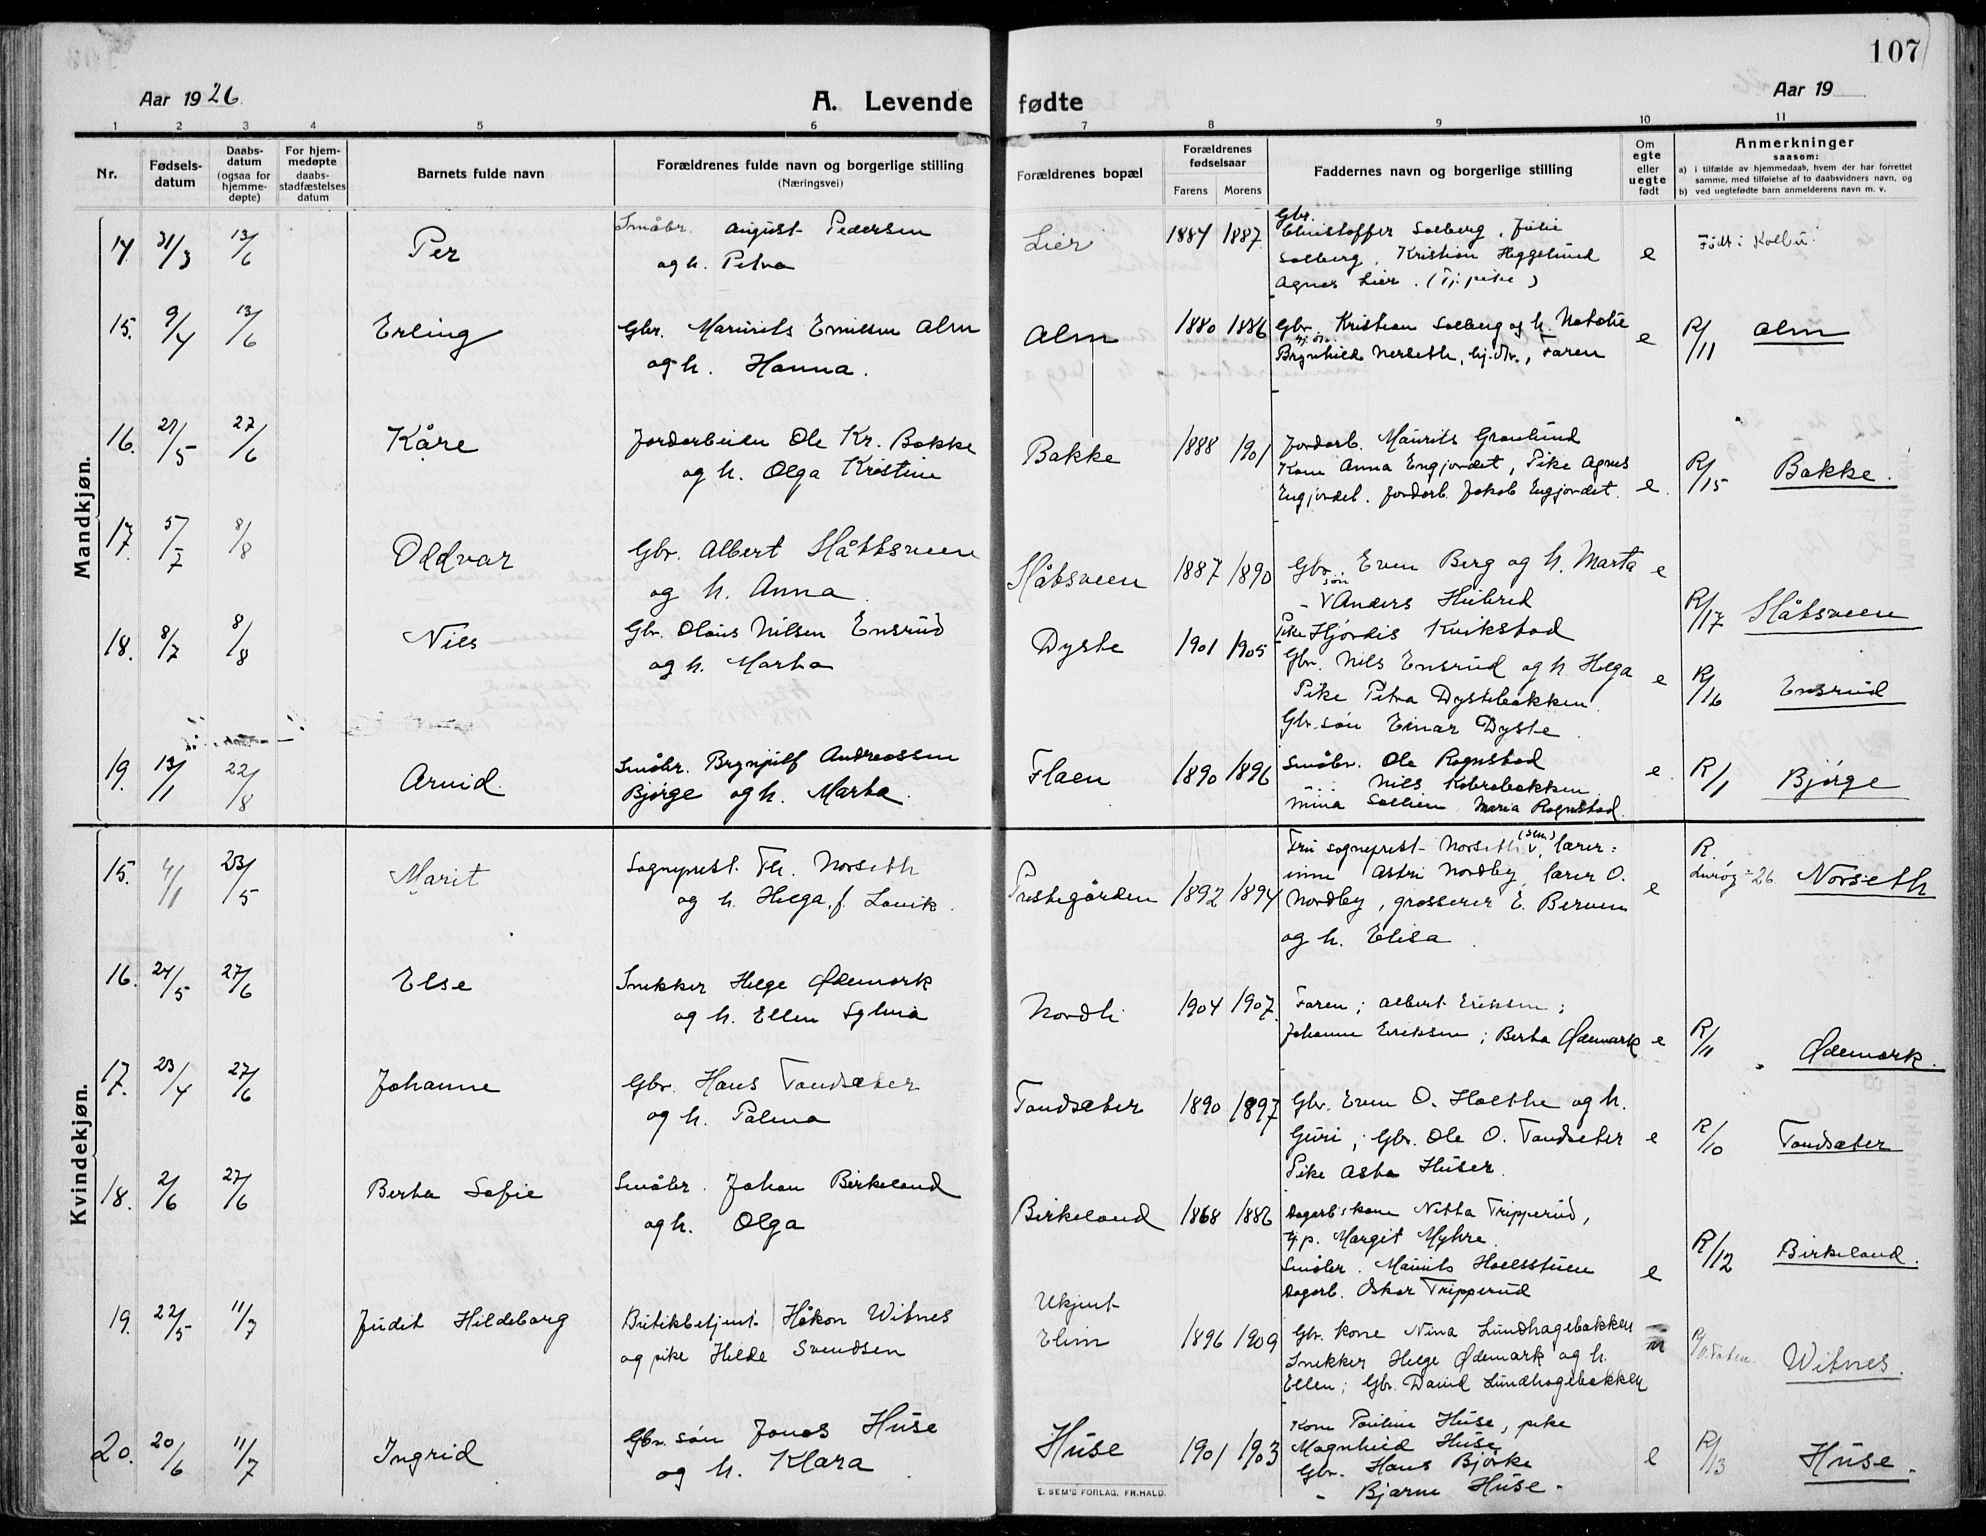 107
Aar 1926
A. Levende fødte
Aar 19
1 2 3 4 5 6 7 8 9 10 11
Nr.
Fødsels-
datum
Daabs-
datum
(ogsaa for
hjemme-
døpte)
For hjem-
medøpte
daabs-
stadfæstelses
datum
Barnets fulde navn
Forældrenes fulde navn og borgerlige stilling
(Næringsvei)
Forældrenes bopæl
Forældrenes
fødselsaar
Farens Morens
Faddernes navn og borgerlige stilling
Om
egte
eller
uegte
født
Anmerkninger
saasom:
a) i tilfælde av hjemmedaab, hvem der har forrettet
samme, med tilføielse av to daabsvidners navn, og
b) ved uegtefødte barn anmelderens navn m. v.
Mandkjøn.
14 31/3 13/6 Per
Småbr. August Pedersen
og h. Petra
Lier 1884 1887
Gbr.
Christoffer Solberg, Julie
Solberg, Kristian Heggelund
Agnes Lier. (Tj. pike)
e
Født i Kolbu
15. 9/4 13/6 Erling
Gbr. Maurits Emilsen Alm
og h. Hanna.
Alm 1880 1886
Gbr. Kristian Solberg og h. Natalie
Brynhild Nerseth, hj. dtr., Faren
e
R/11 Alm
16. 21/5 27/6 Kåre
Jordarbeider Ole Kr. Bakke
og h. Olga Kristine
Bakke 1888 1901
Jordarb. Maurits Granlund
Kone Anna Engjordet, Pike Agnes
Engjordet. Jordarb. Jakob Engjordet.
e.
R/15 Bakke.
17. 5/7 8/8 Oddvar
Gbr. Albert Slåttsveen
og h. Anna.
Slåtsveen 1887 1890
Gbr. Even Berg og h. Marta
søn
- V Anders Hilred
Pike Hjørdis Kvikstad
e
R/17 Slåtsveen
18. 8/7 8/8 Nils
Gbr. Olaus Nilsen Ensrud
og h. Marta
Dyste 1901 1905
Gbr. Nils Ensrud og h. Helga
Pike Petra Dystebakken
Gbr. søn Einar Dyste.
e
R/16 Ensrud
19. 13/1 22/8 Arvid.
Småbr. Brynjulf Andreassen
Bjørge og h. Marta.
Flaen 1890 1896
Småbr. Ole Rognstad
Nils Kobrobakken
Mina Sollien Maria Rognstad.
e.
R/1 Bjørge
Kvindekjøn.
15. 4/1 23/5 Marit
Sogneprest Th. Norseth
og h. Helga, f. Lovik.
Prestegården 1892 1894
Fru sogneprest Norseth (sen.) V, lærer:
inne Astri Nordby, lærer O.
Nordby, grosserer E. Berven
og h. Elisa.
e
R.
26. Norseth
16. 24/5 27/6 Else
Snekker Helge Ødemark
og h. Ellen Sylvia
Nordli 1904 1907.
Faren; Albert Eriksen;
Johanne Eriksen; Berta Ødemark
e
R/11 Ødemark.
17. 23/4 27/6 Johanne
Gbr. Hans Tandsæter
og h. Palma
Tandsæter 1890 1897
Gbr. Even O. Holthe og h.
Guri; Gbr. Ole O. Tandsæter
Pike Asta Huser.
e
R/10 Tandsæter
18. 2/6 27/6 Berta Sofie
Småbr. Johan Birkeland
og h. Olga
Birkeland 1868 1882
Dagarb. kone Netta Tripperud,
Tj. p. Margit Myhre.
Småbr. Maurits Hoelsstuen
Dagarb. Oskar Tripperud
e
R/12 Birkeland.
19. 22/5 11/7 Judit Hildeborg
Butikbetjent Håkon Witnes
og pike Hilde Svendsen
Ukjent
Elim 1896 1909
Gbr. kone Nina Lundhagebakken
Snekker Helge Ødemark og h.
Ellen; Gbr. David Lundhagebakken
Witnes.
20. 20/6 11/7 Ingrid
Gbr. søn Jonas Huse
og h. Klara
Huse 1901 1903
Kone Pauline Huse, pike
Magnhild Huse
Gbr. Hans Bjørke
- Bjarne Huse.
e
R/13 Huse.
E. SEM'S FORLAG. FR.HALD.